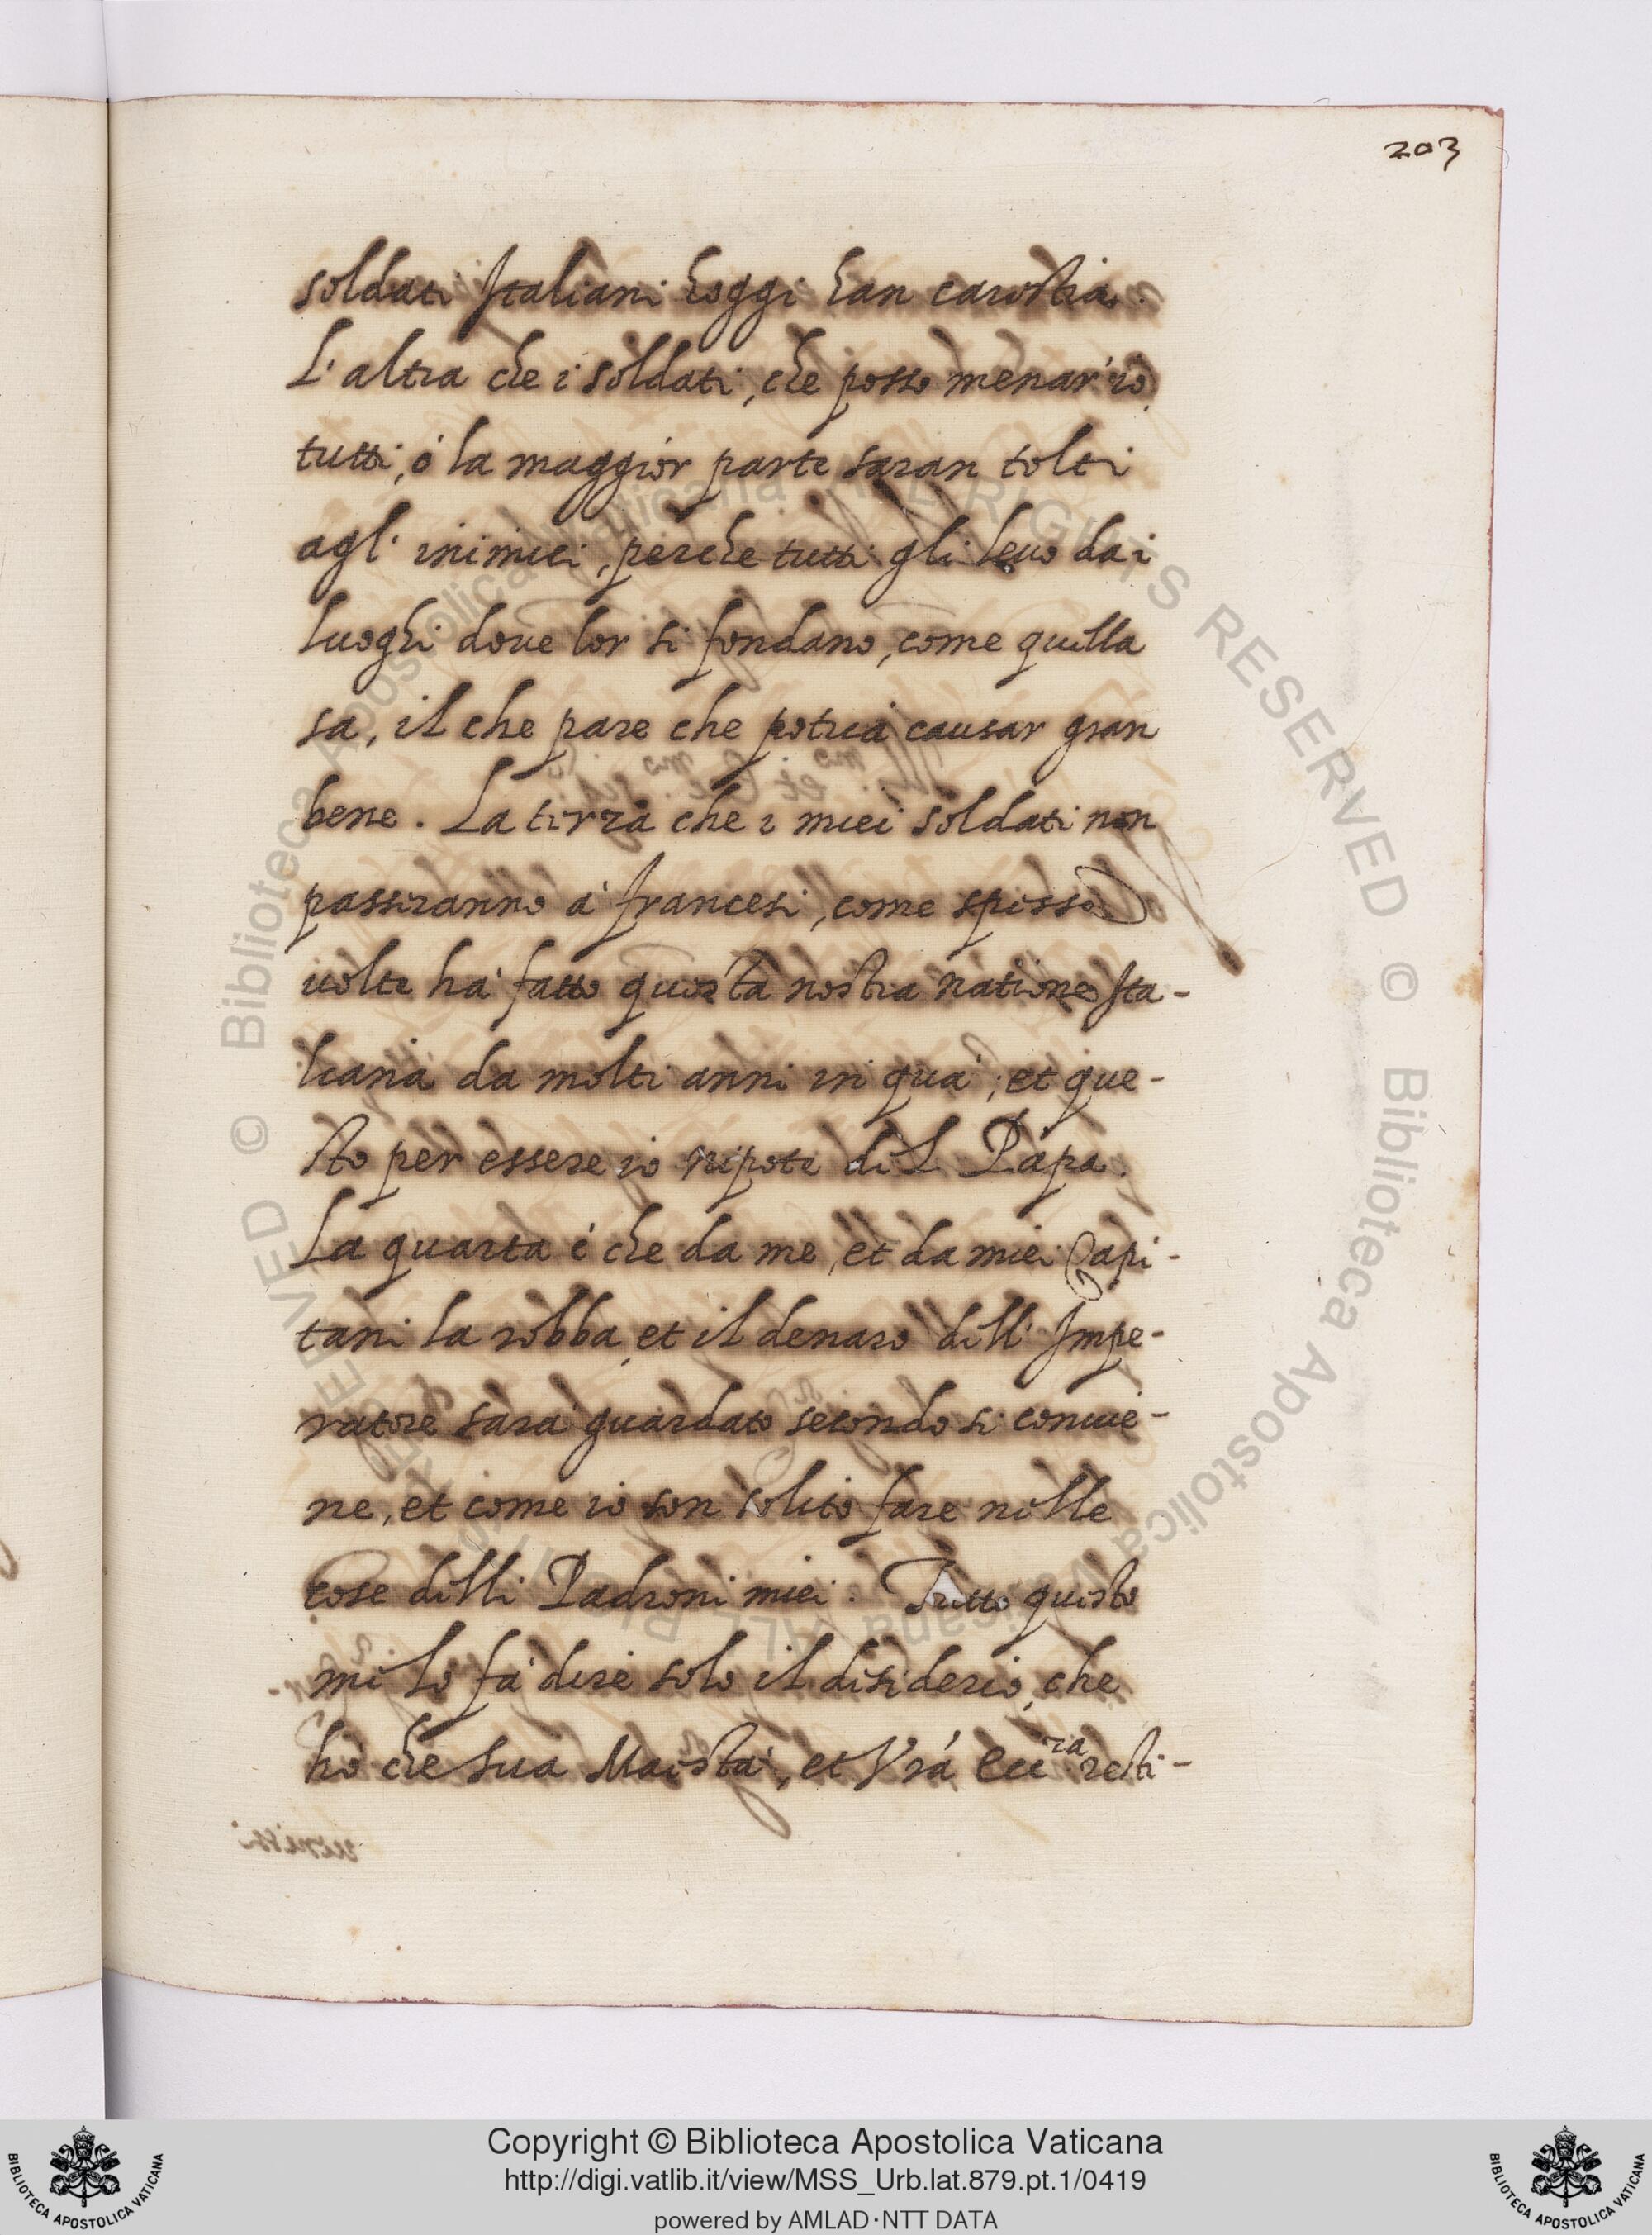 203
soldati Italiani hoggi han carestia.
L'altra che i soldati, che posso menar io,
tutti, ó la maggior parte saran tolti
agl' inimici, perche tutti gli leuo da i
luoghi doue lor si fondano, come quella
sa, il che pare che potria causar gran
bene. La terza che i miei soldati non
passeranno à francesi, come spesse
uolte hà fatto questa nostra natione Ita-
liana da molti anni in quà; et que-
sto per essere io nepote del Papa.
La quarta è che da me, et da miei Capi-
tani la robba, et il denaro dell' Impe-
ratore sarà guardato secondo si conuie-
ne, et come io son solito fare nelle
cose delli Padroni miei. Tutto questo
mi lo fà dire solo il desiderio, che
hò che sua Maestà, et Vrá Ecc.ia resti-
© Biblioteca Apostolica Vaticana ALL RIGHTS RESERVED © Biblioteca Apostolica Vaticana ALL RIGHTS RESERVED
Copyright © Biblioteca Apostolica Vaticana
http://digi.vatlib.it/view/MSS_Urb.lat.879.pt.1/0419
powered by AMLAD·NTT DATA
BIBLIOTECA APOSTOLICA VATICANA
BIBLIOTECA APOSTOLICA VATICANA